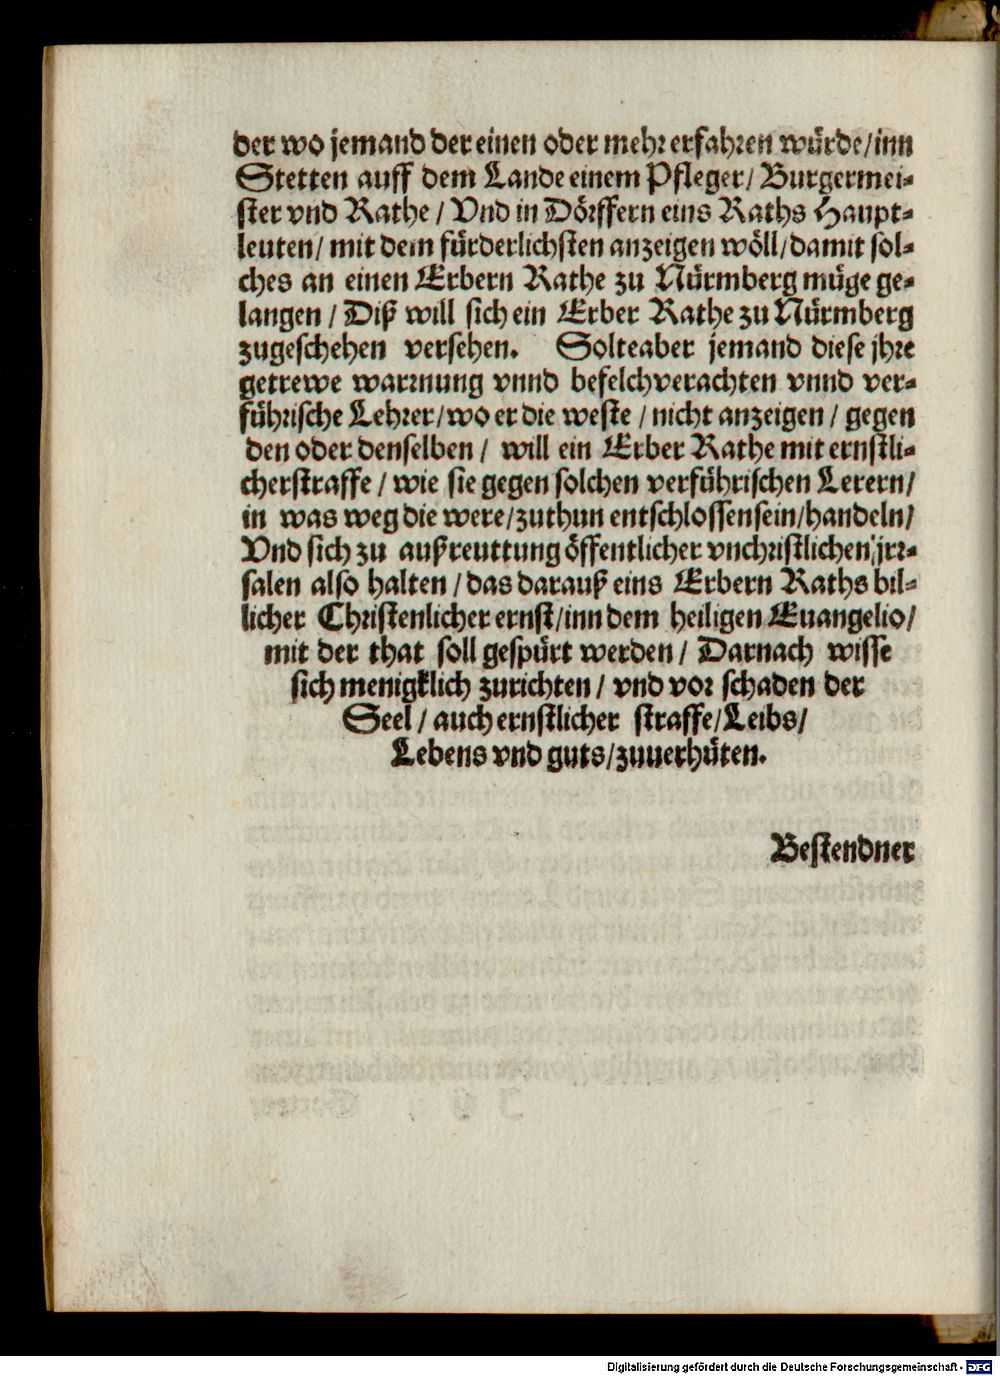 der wo jemand der einen oder mehr erfahren würde/inn
Stetten auff dem Lande einem Pfleger/ Burgermei-
ster vnd Rathe / Vnd in Dörffern eins Raths Haupt-
leuten/ mit dem fürderlichsten anzeigen wöll/damit sol-
ches an einen Erbern Rathe zu Nürmberg müge ge-
langen / Diß will sich ein Erber Rathe zu Nürmberg
zugeschehen versehen. Solteaber jemand diese jhre
getrewe warrnung vnnd befelchverachten vnnd ver-
führische Lehrer/wo er die weste / nicht anzeigen / gegen
den oder denselben / will ein Erber Rathe mit ernstli-
cherstraffe / wie sie gegen solchen verführischen Lerern/
in was weg die were/zuthun entschlossensein/handeln/
Vnd sich zu außreuttung öffentlicher vnchristlichen jrr-
salen also halten / das darauß eins Erbern Raths bil-
licher Christenlicher ernst/inn dem heiligen Euangelio/
mit der that soll gespürt werden / Darnach wisse
sich menigklich zurichten / vnd vor schaden der
Seel / auch ernstlicher straffe/Leibs/
Lebens vnd guts/zuuerhüten.
Bestendner
Digitalisierung gefördert durch die Deutsche Forschungsgemeinschaft - DFG